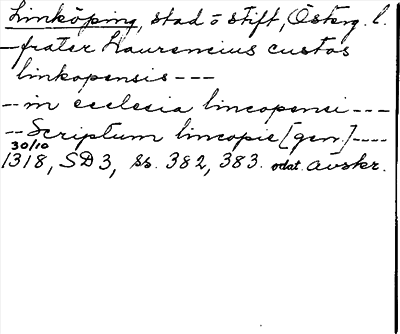 Linköping, stad o stift, Österg. l.
- frater Laurencius custos
linkopensis ---
-- in ecclesia lincopensi ---
-- Scriptum lincopie [gen.] ----
30/10
1318, SD 3, ss. 382, 383. odat. avskr.